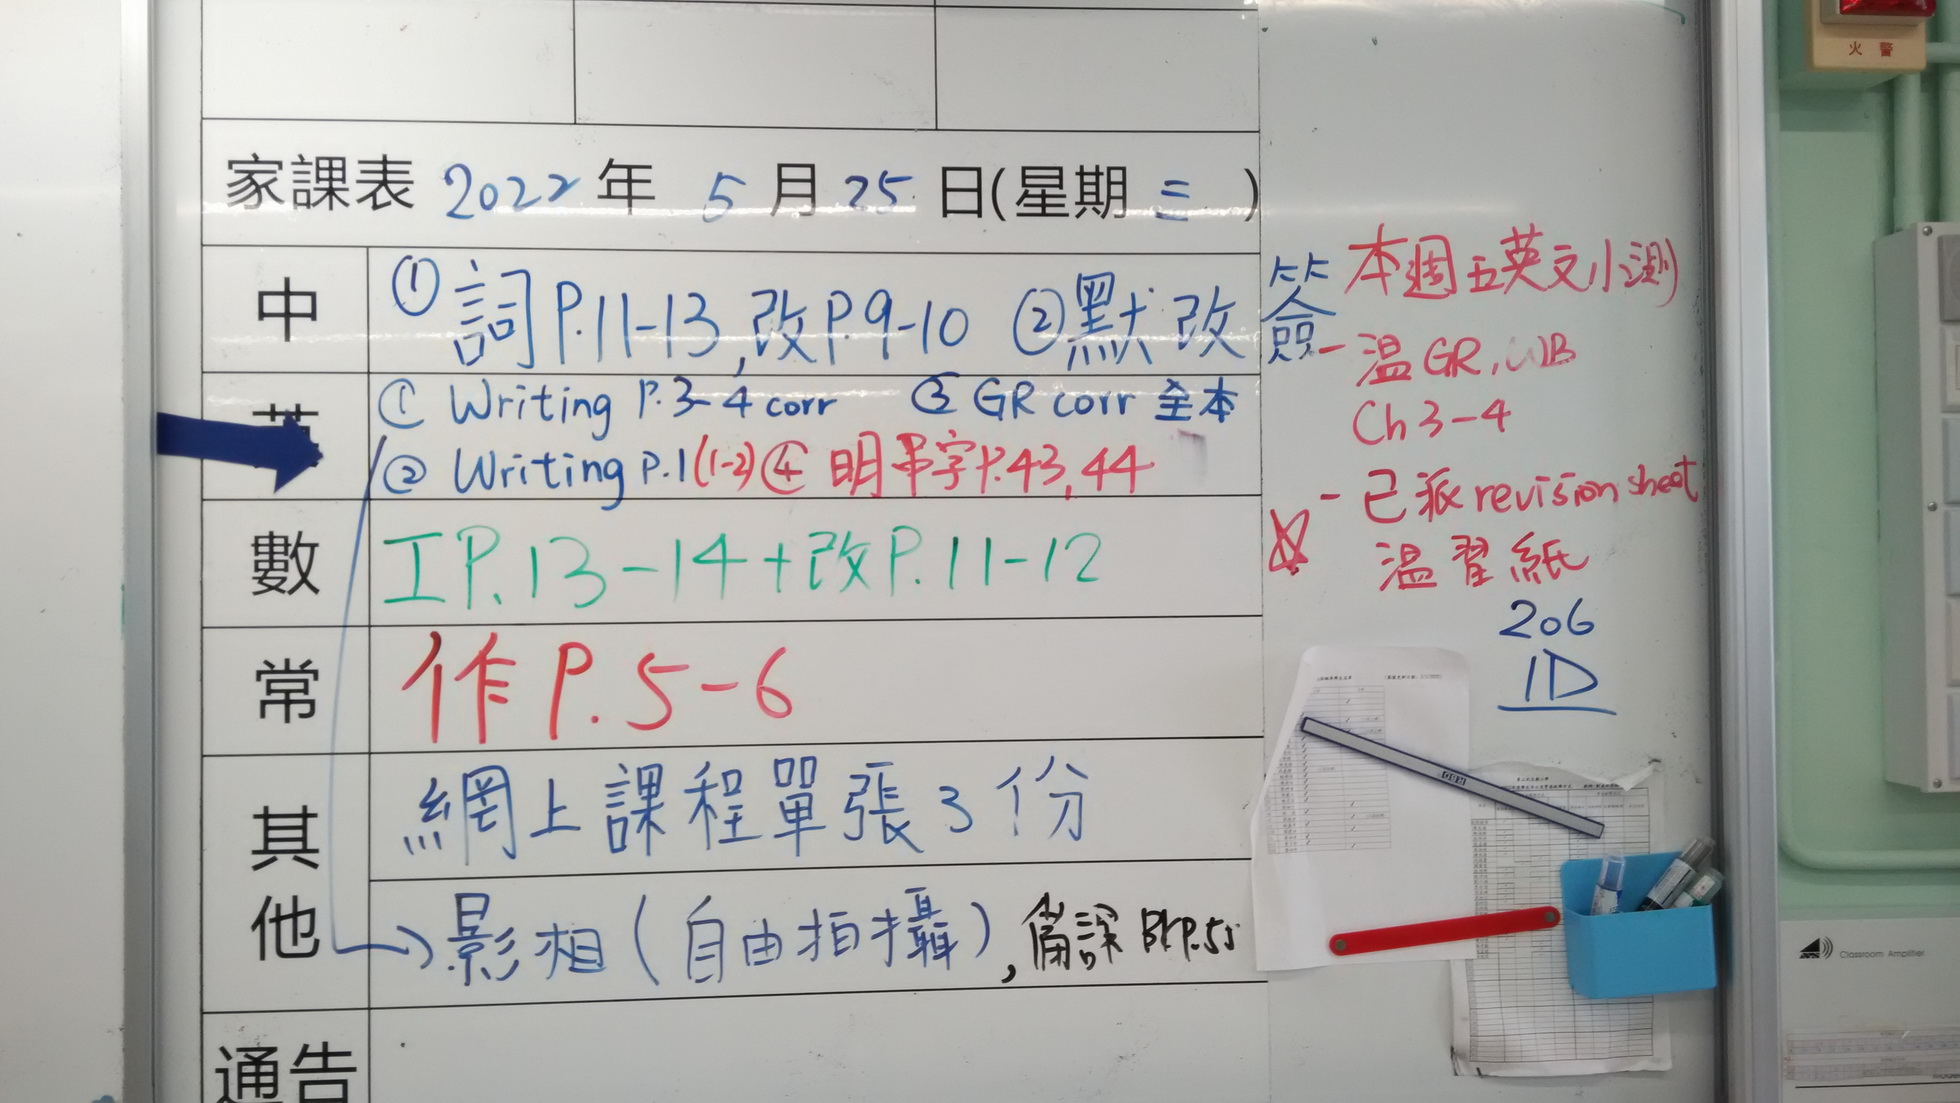 火警
家課表 2022年 5月25日(星期三)
中
① 詞P.11-13,改P.9-10 ②默改簽
英
① Writing P.3-4 corr ③ GR corr 全本
② Writing P.1(1-2) ④ 明串字P.43,44
數
工P.13-14+改P.11-12
常
作P.5-6
其他
網上課程單張3份
→影相(自由拍攝),備課BK P.55
通告
本週五英文小測
- 溫GR, WB
Ch 3-4
- 已派revision sheet
溫習紙
206
1D
Classroom Amplifier